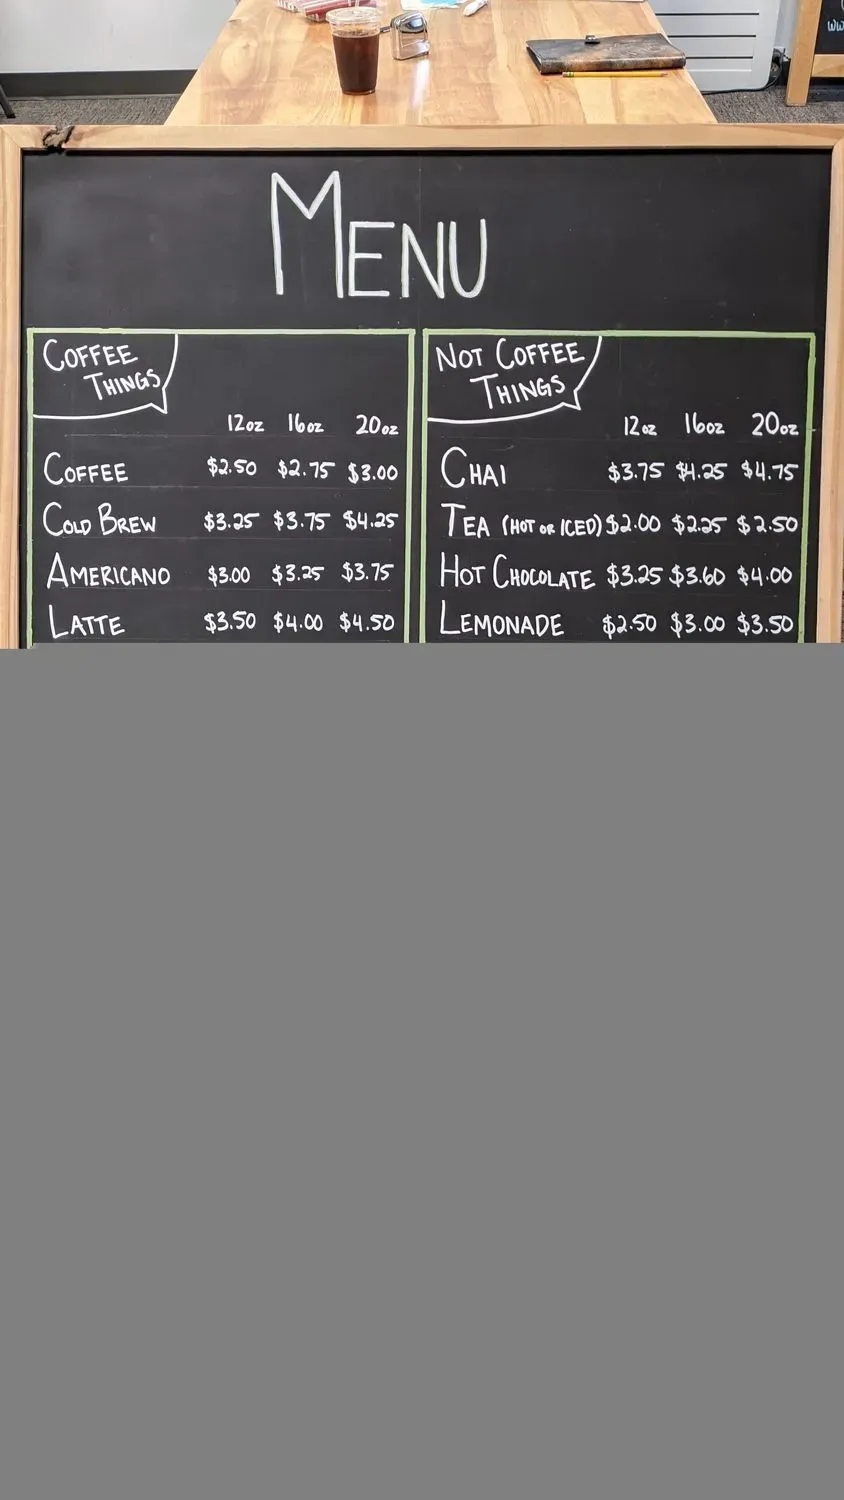 MENU
COFFEE THINGS
12oz 16oz 20oz
COFFEE $2.50 $2.75 $3.00
COLD BREW $3.25 $3.75 $4.25
AMERICANO $3.00 $3.25 $3.75
LATTE $3.50 $4.00 $4.50
NOT COFFEE THINGS
12oz 16oz 20oz
CHAI $3.75 $4.25 $4.75
TEA (HOT OR ICED) $2.00 $2.25 $2.50
HOT CHOCOLATE $3.25 $3.60 $4.00
LEMONADE $2.50 $3.00 $3.50